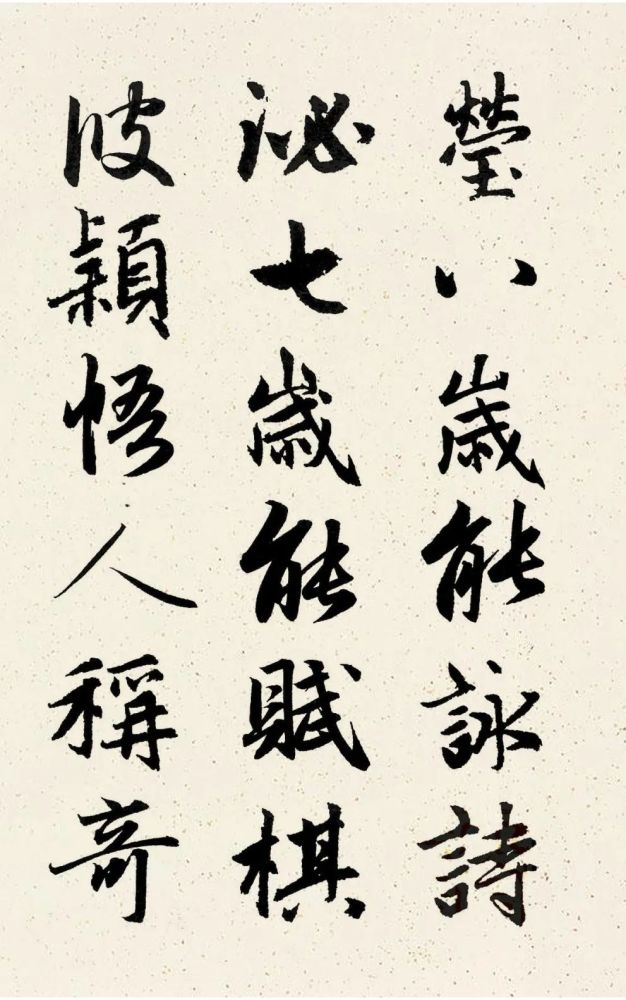 瑩八歲能詠詩
泌七歲能賦棋
彼穎悟人稱奇